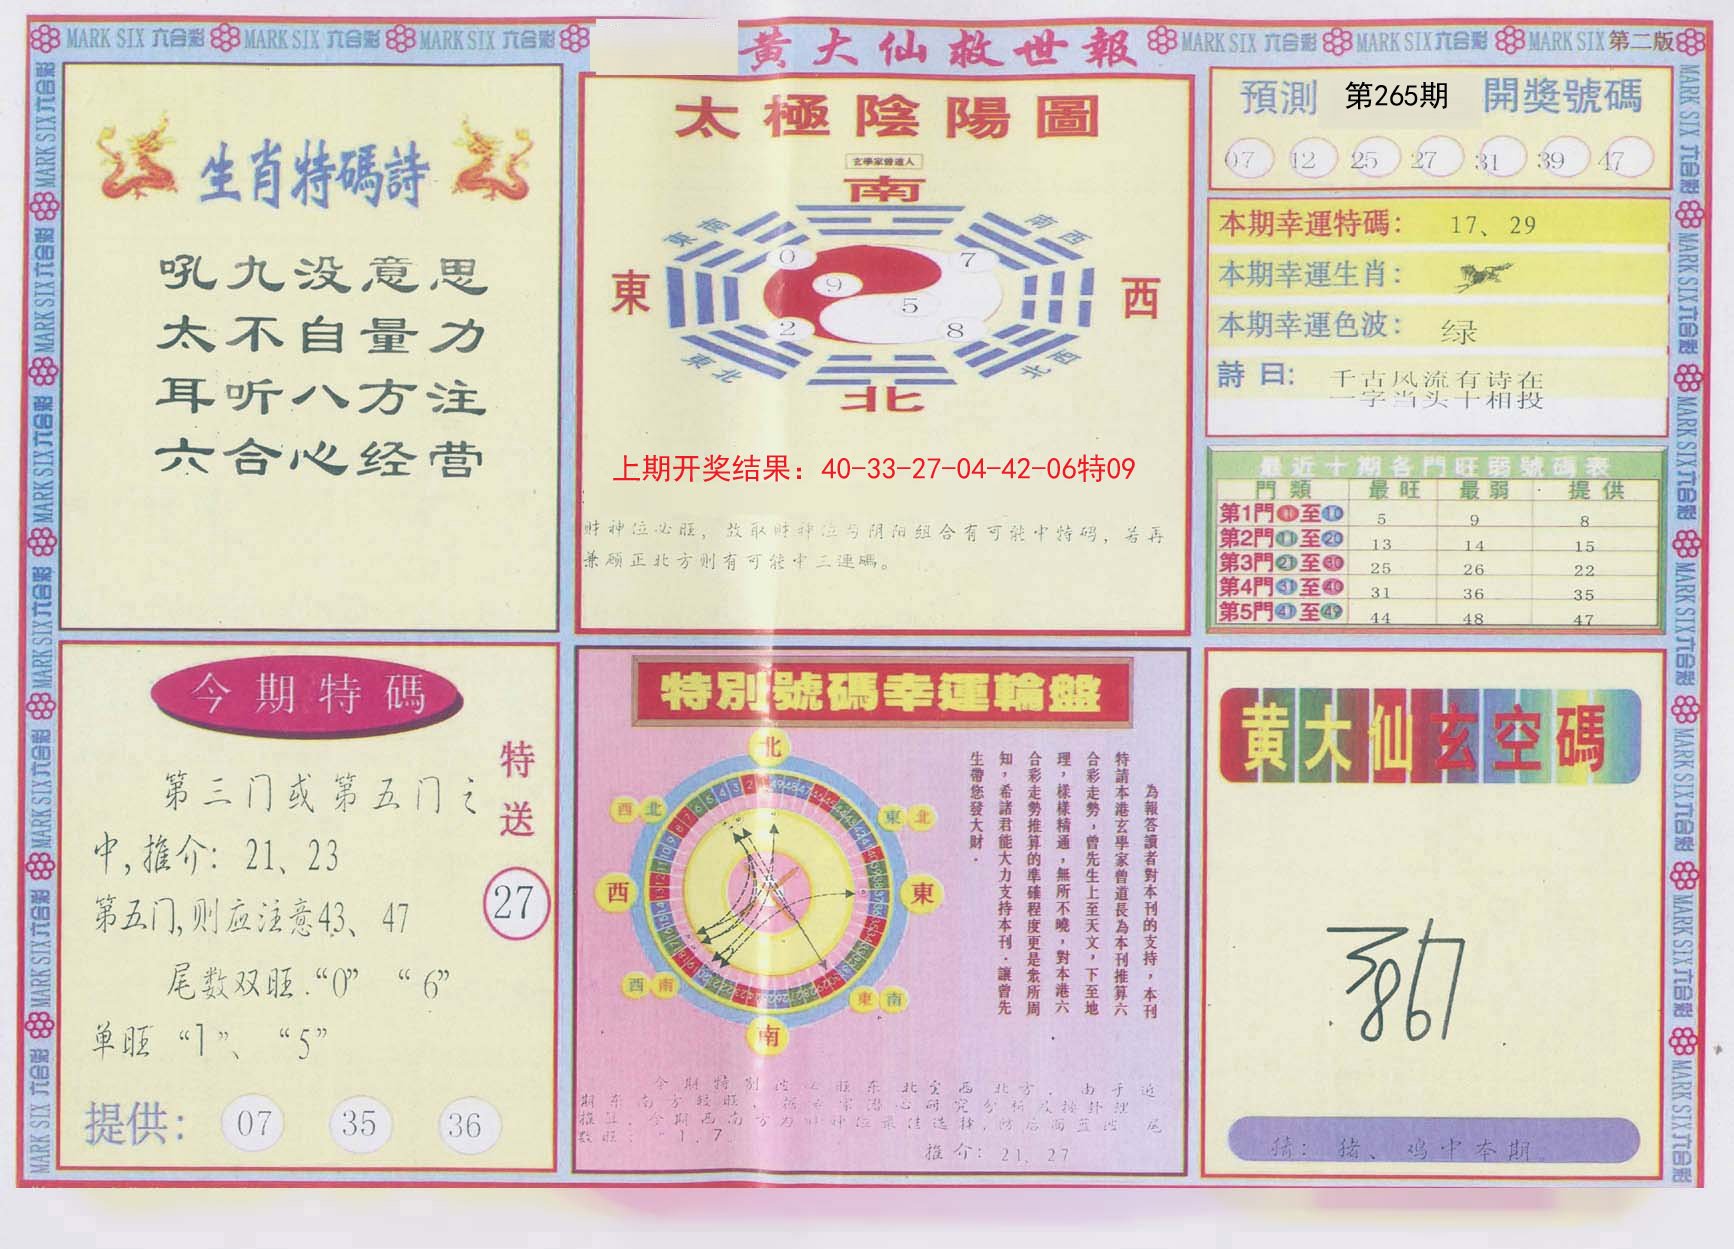 MARK SIX 六合彩 MARK SIX 六合彩 MARK SIX 六合彩
黃大仙救世報
MARK SIX 六合彩 MARK SIX 六合彩 MARK SIX 第二版
生肖特碼詩
吼九没意思
太不自量力
耳听八方注
六合心经营
太極陰陽圖
玄學家曾道人
南
東南
南西
0
7
9
5
2
8
東
西
東北
北西
北
上期开奖结果：40-33-27-04-42-06特09
財神位必旺，故取財神位与阴阳組合有可能中特码，若再
兼顾正北方则有可能中三連碼。
預測 第265期 開獎號碼
07 12 25 27 31 39 47
本期幸運特碼： 17、29
本期幸運生肖：
本期幸運色波： 绿
詩曰： 千古风流有诗在
一字当头十相投
最近十期各門旺弱號碼表
門類 最旺 最弱 提供
第1門 01 至 10 5 9 8
第2門 11 至 20 13 14 15
第3門 21 至 30 25 26 22
第4門 31 至 40 31 36 35
第5門 41 至 49 44 48 47
今期特碼
特送
27
第三门或第五门之
中,推介：21、23
第五门,则应注意43、47
尾数双旺.“0” “6”
单旺 “1”、“5”
提供： 07 35 36
特別號碼幸運輪盤
北
西北
東北
西
東
西南
東南
南
為報答讀者對本刊的支持，本刊
特請本港玄學家曾道長為本刊推算六
合彩走勢，曾先生上至天文，下至地
理，樣樣精通，無所不曉，對本港六
合彩走勢推算的準確程度更是衆所周
知，希諸君能大力支持本刊．讓曾先
生帶您發大財．
推介：21、27
黄大仙玄空碼
猜：猪、鸡中本期。